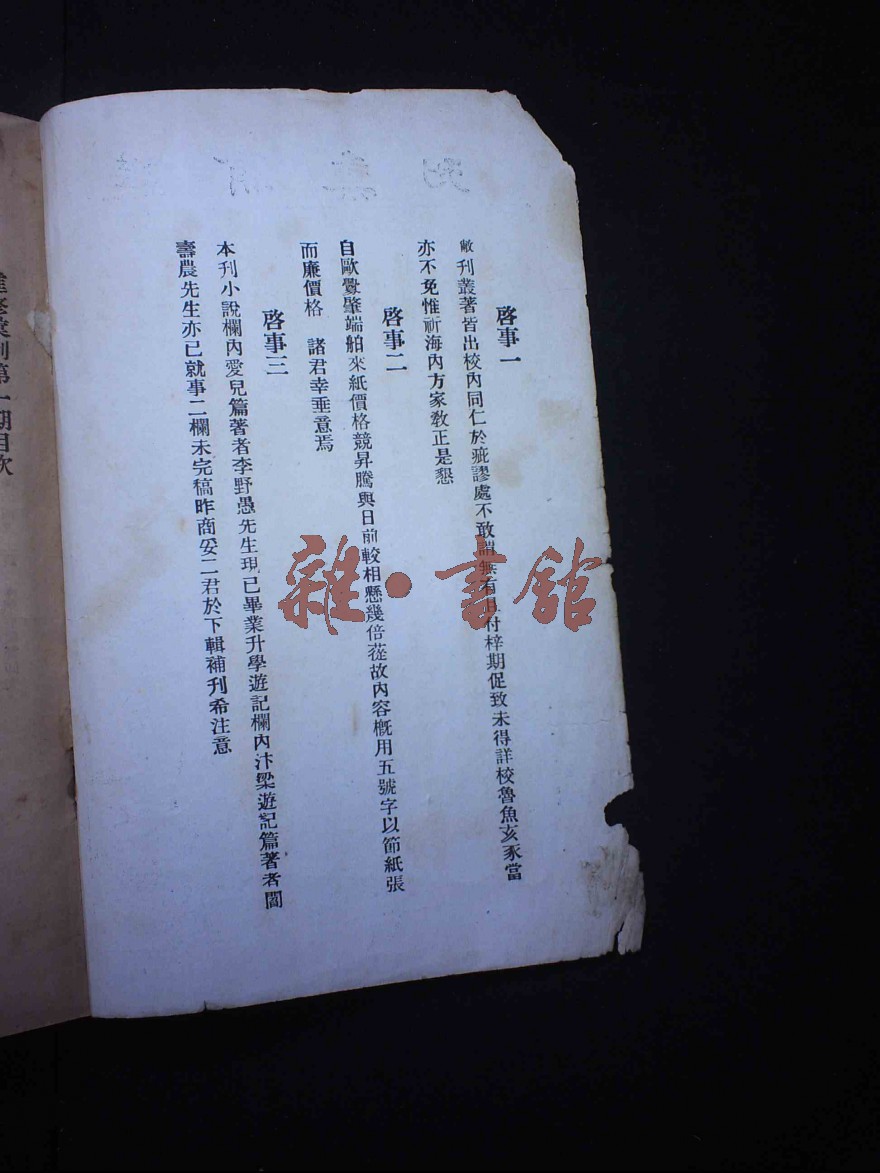 啓事一
敝刋叢著皆出校內同仁於疵謬處不敢謂無有且付梓期促致未得詳校魯魚亥豕當
亦不免惟祈海內方家敎正是懇
啓事二
自歐釁肇端舶來紙價格競昇騰與日前較相懸幾倍蓰故內容槪用五號字以節紙張
而廉價格　諸君幸垂意焉
啓事三
本刋小說欄內愛兒篇著者李野愚先生現已畢業升學遊記欄內汴梁遊記篇著者閻
壽農先生亦已就事二欄未完稿昨商妥二君於下輯補刋希注意
業刋第一期目次
雜·書館